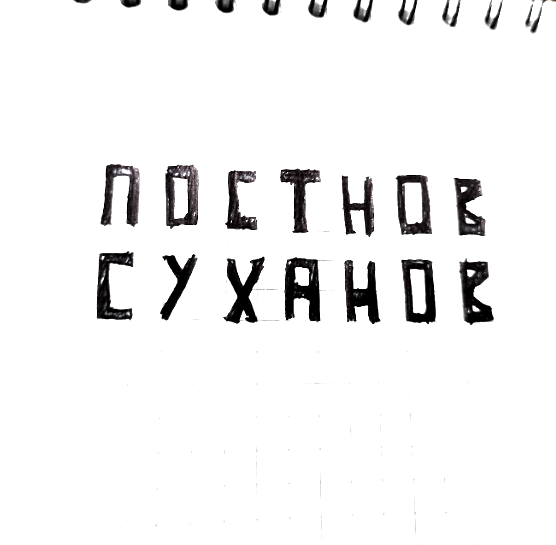 ПОСТНОВ
СУХАНОВ